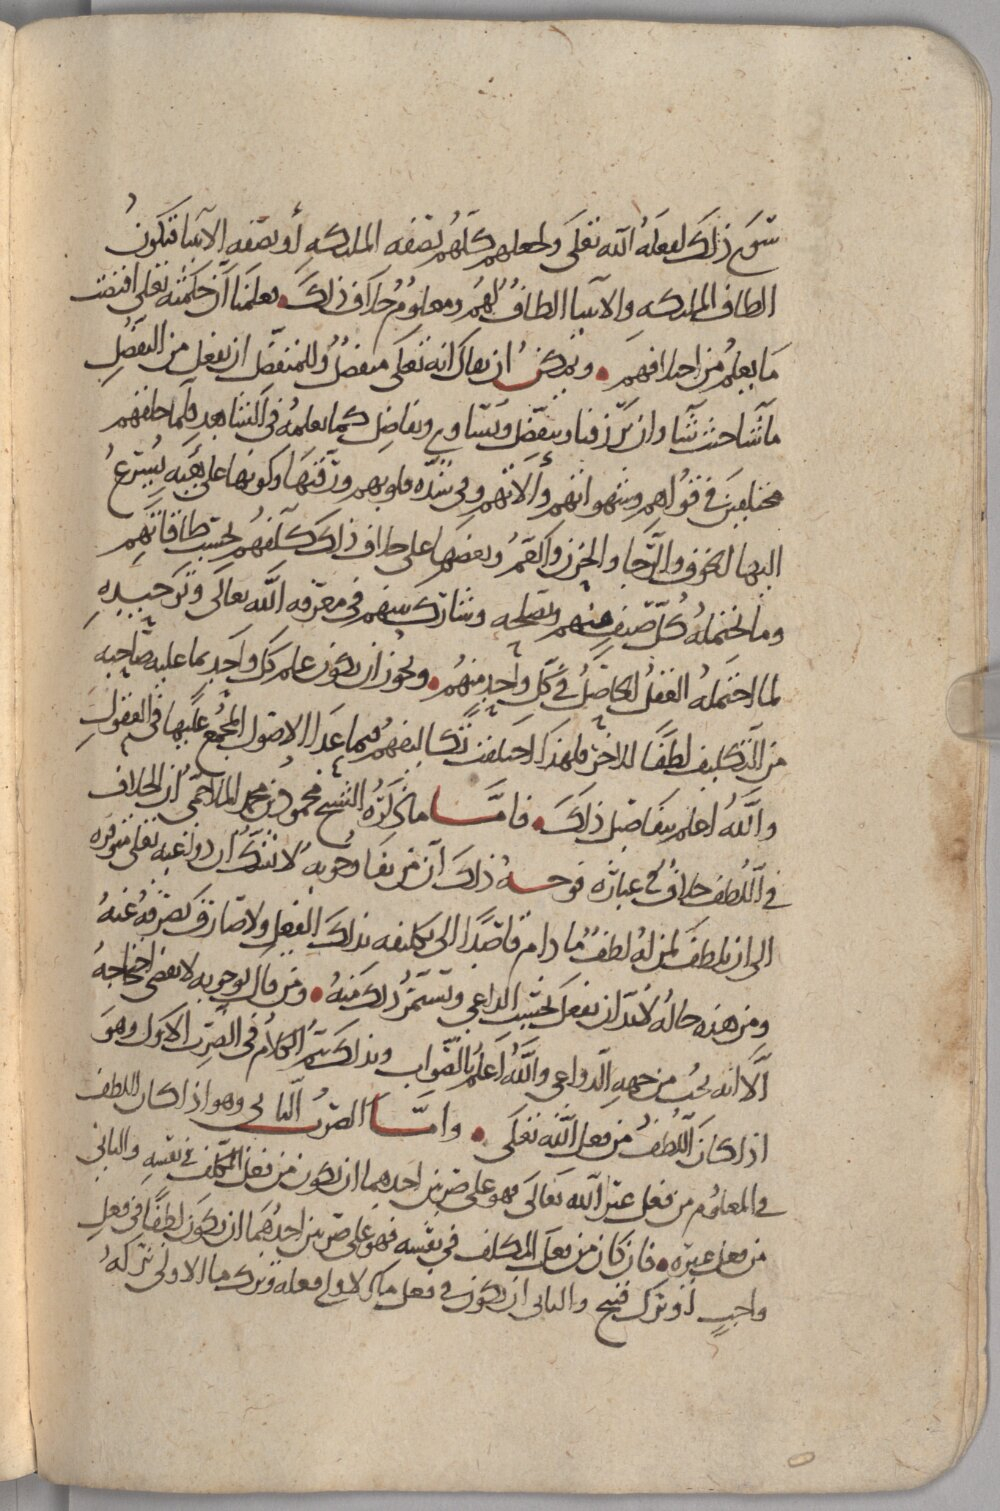 شىء من ذلك لفعله الله تعلى ولجعلهم كلهم بصفه الملىكه أو بصفه الآنبيا فتكون
الطاف الملىكه والانبيا الطافٌ لهم ومعلومٌ خلاف ذلك ، بعلمنا أن حكمته تعلى اقتضت
مَا يعلمُ من اختلافهم ۰ ويمكنُ ان يقال انه تعلى متفضلٌ وللمتفضّل ان يفعل من التفضُّلِ
ما شا حيث شآ وان يرزقنا ويتفضّل ويُساوي ويفاضل كما يعلمهُ في الشاهد فلمّا خلقهم
مختلفين في قُواهم وشهواتهم وألاتهم وفي شدّه قلوبهم ورقّتها وكونها على بنيه يُسرعُ
اليها الخوف والرَّجا والحزن والغمُّ وبعضها على خلاف ذلك كلّفهم بحسب طاقاتهم
وما تحتملهُ كلّ بنيه منهم ومصلحه وشارك بينهم في معرفه الله تعالى وتوحيده
لما احتملهُ العقلُ الحاصلُ في كلّ واحدٍ منهُم ۰ ويجوز ان يكون علم كل واحدٍ بما عليه صاحبه
من التكليف لطفًا للاخر فلهذا اختلفت تكاليفهم فيما عدا الاصول المُجمع عليها في العقول
والله اعلم بتفاصيل ذلك ۰ فامّا ما ذكرهُ الشيخ محمودُ بن محمد الملاحمي أن الخلاف
في اللُّطف خلافٌ في عبارَه فوجــهُ ذلك أن من نفا وجُوبهُ لا يُنكر أن دواعيه تعلى متوفره
الى ان يلطف لمن لهُ لطفٌ ما دام قاصدًا الى تكليفه بذلك الفعل ولا صارف يصرفهُ عنهُ
ومن هذه حالهُ لابُدّ ان يفعل بحسب الداعي ويستمرُّ ذلك منهُ ۰ ومن قال بوجوبه لا يقضي احتجاجهُ
الّا انه يجب من جهه الدواعي واللهُ اعلمُ بالصَّواب وبذلك يتمُّ الكلام في الضرب الاول وهو
اذا كان اللُّطفُ من فعل الله تعلى ۰ وامّا الضربُ الثاني وهو اذا كان اللطف
في المعلوم من فعل غير الله تعالى فهو على ضربين احدهما ان يكون من فعل المكلّف في نفسه والثاني
من فعل غيره ۰ فان كان من فعل المكلف في نفسه فهو على ضربين احدُهما ان يكون لطفًا في فعل
واجبٍ أو ترك قبيح والثاني ان يكون في فعل ما الاولى فعله وترك ما الاولى تركهُ